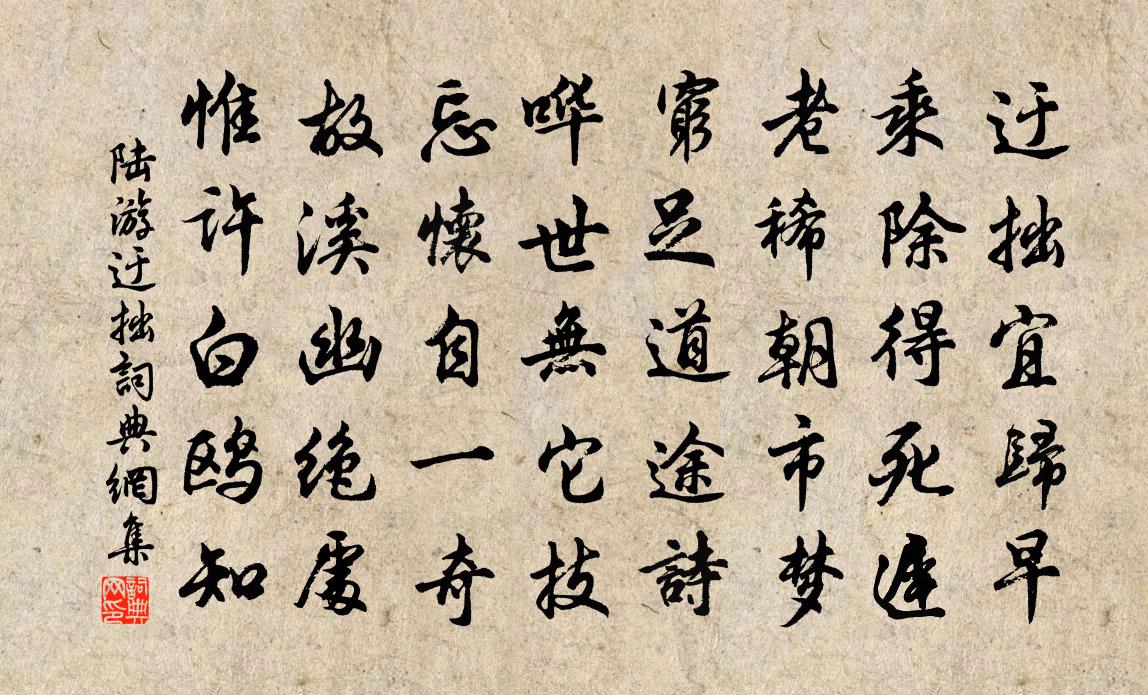 迂拙宜歸早
乘除得死遲
老稀朝市梦
窮足道途詩
哗世無它技
忘懷自一奇
故溪幽绝處
惟許白鸥知
陆游迂拙詞典網集
詞典网印